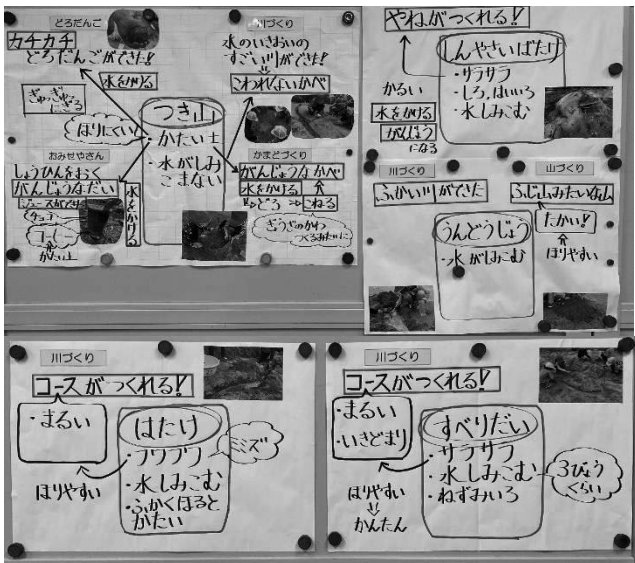 どろだんご
カチカチ
どろだんごができた!
水をかける
ぎゅっぎゅっ
にぎる
川づくり
水のいきおいの
すごい川ができた!
こわれないかべ
つき山
・かたい土
・水がしみ
こまない
ほりにくい
おみせやさん
しょうひんをおく
がんじょうなだい
水をかける
かたい土
かまどづくり
がんじょうなかべ
水をかける
どろ
こねる
ぞうさんのかわ
つくるみたいに
やねがつくれる!
しんやさいばたけ
・サラサラ
・しろ、はいいろ
・水しみこむ
かるい
水をかける
がんじょう
になる
川づくり
ふかい川ができた
山づくり
ふじ山みたいな山
たかい!
ほりやすい
うんどうじょう
・水がしみこむ
川づくり
コースがつくれる!
・まるい
ほりやすい
はたけ
・フワフワ
・水しみこむ
・ふかくほると
かたい
ミミズ
川づくり
コースがつくれる!
・まるい
・いきどまり
ほりやすい
かんたん
すべりだい
・サラサラ
・水しみこむ
・ねずみいろ
3びょう
くらい